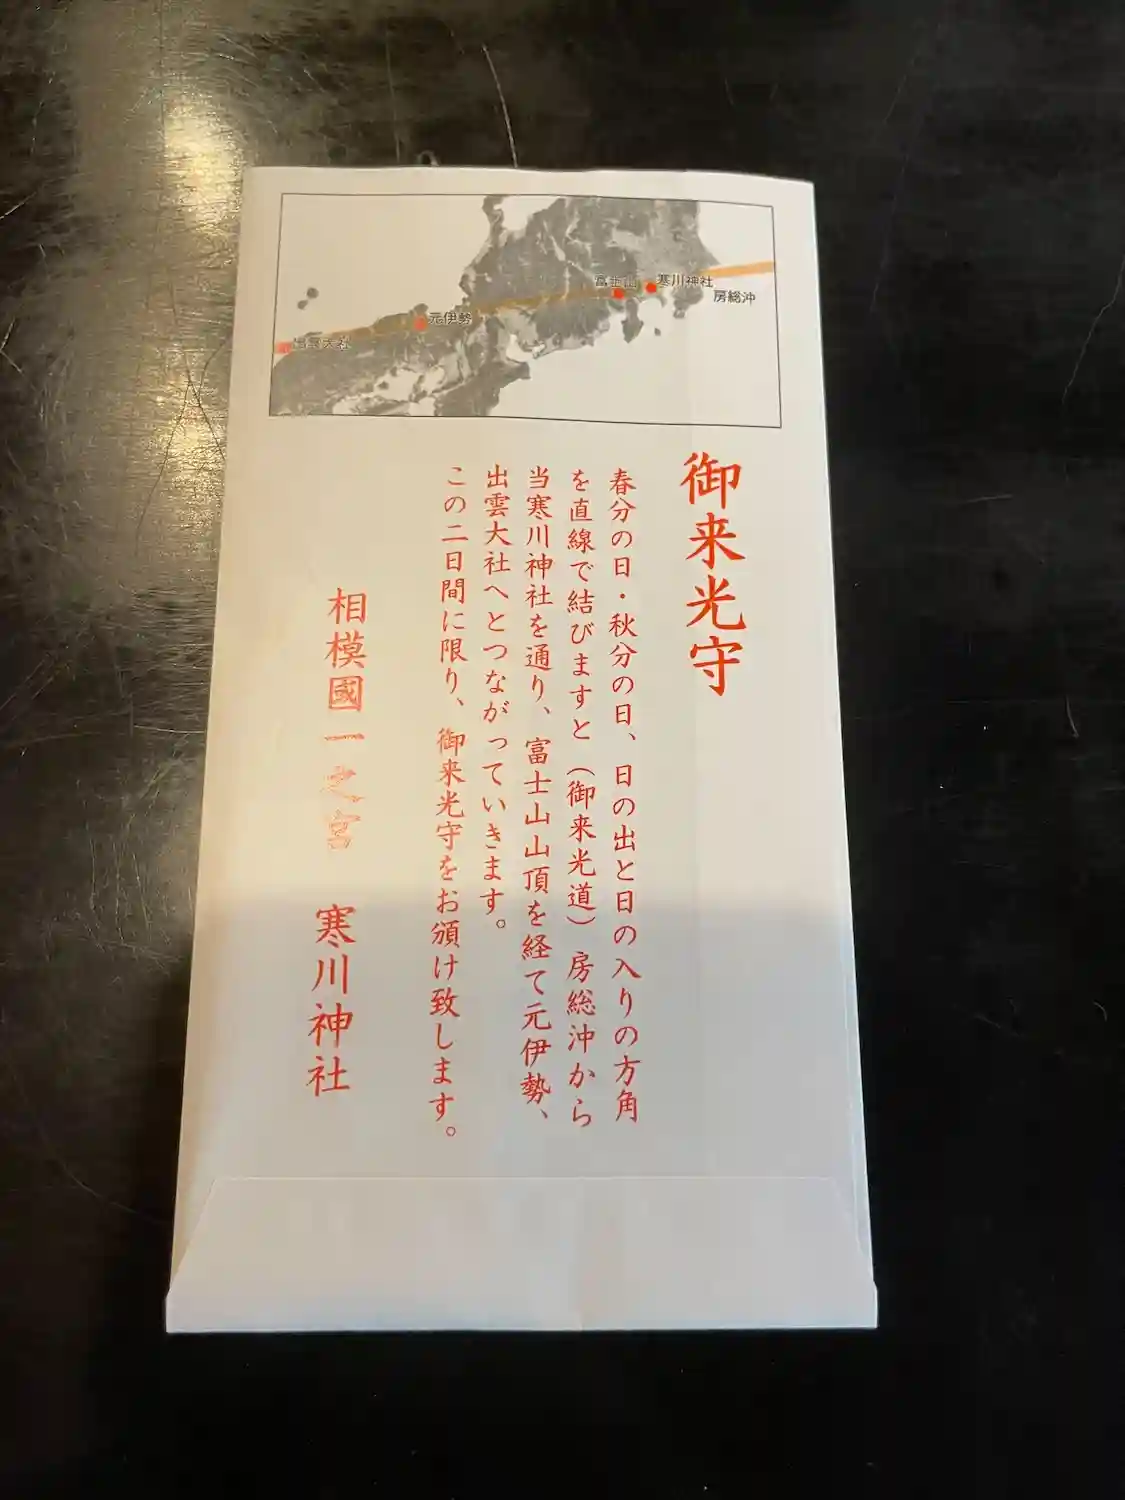 富士山
寒川神社
房総沖
元伊勢
出雲大社
御来光守
春分の日・秋分の日、日の出と日の入りの方角
を直線で結びますと（御来光道）房総沖から
当寒川神社を通り、富士山山頂を経て元伊勢、
出雲大社へとつながっていきます。
この二日間に限り、御来光守をお頒け致します。
相模國一之宮 寒川神社